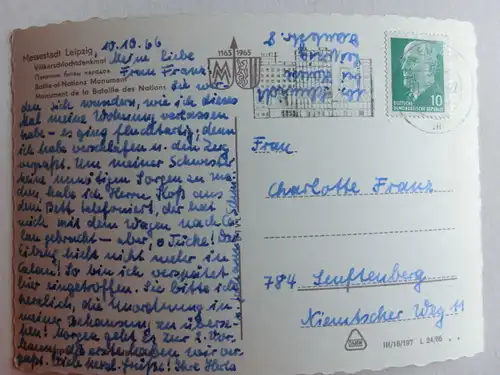 Messestadt Leipzig
Völkerschlachtdenkmal
Памятник битвы народов
Battle-of-Nations Monument
Monument de la Bataille des Nations
10.10.66
Meine liebe
Frau Franz!
Sie wer-
den sich wundern, wie ich dieses
Mal meine Wohnung verlassen
habe - es ging fluchtartig; denn
ich habe verschlafen u. den Zug
verpaßt. Um meiner Schwester
keine unnötigen Sorgen zu ma-
chen, habe ich Herrn aus
dem Bett telefoniert, der hat
mich mit dem Wagen nach Ca-
lau gebracht - aber, o Tücke! Der
hielt nicht mehr in
Calau! So bin ich verspätet
hier eingetroffen. Sie bitte ich
herzlich, die Unordnung in
meiner Behausung zu überse-
hen! Morgen geht es zur 2. Vor-
die erste haben wir ver-
paßt. Viele herzl. Grüße! Ihre
1165 1965
M
bei
DEUTSCHE
DEMOKRATISCHE REPUBLIK
10
Frau
Charlotte Franz
784 Senftenberg
Niemtscher Weg 11
III/18/197 L 24/66